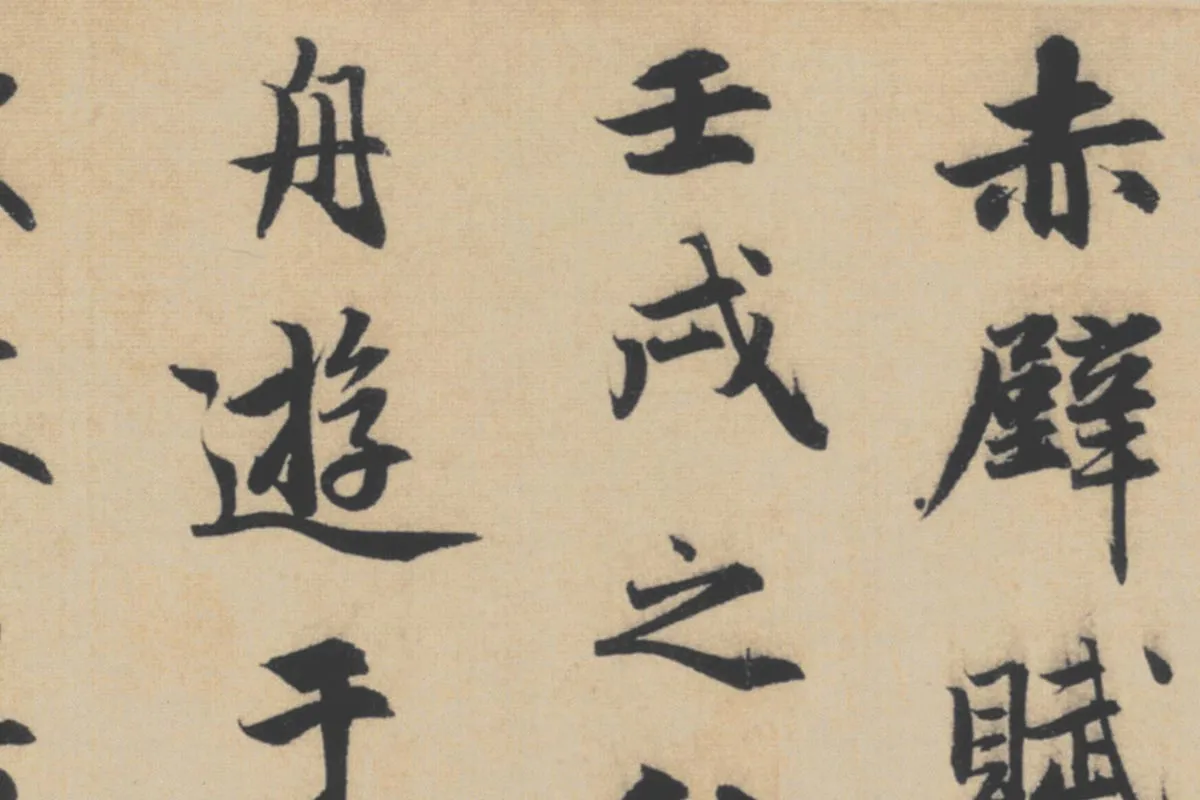 赤壁賦
壬戌之
舟遊于